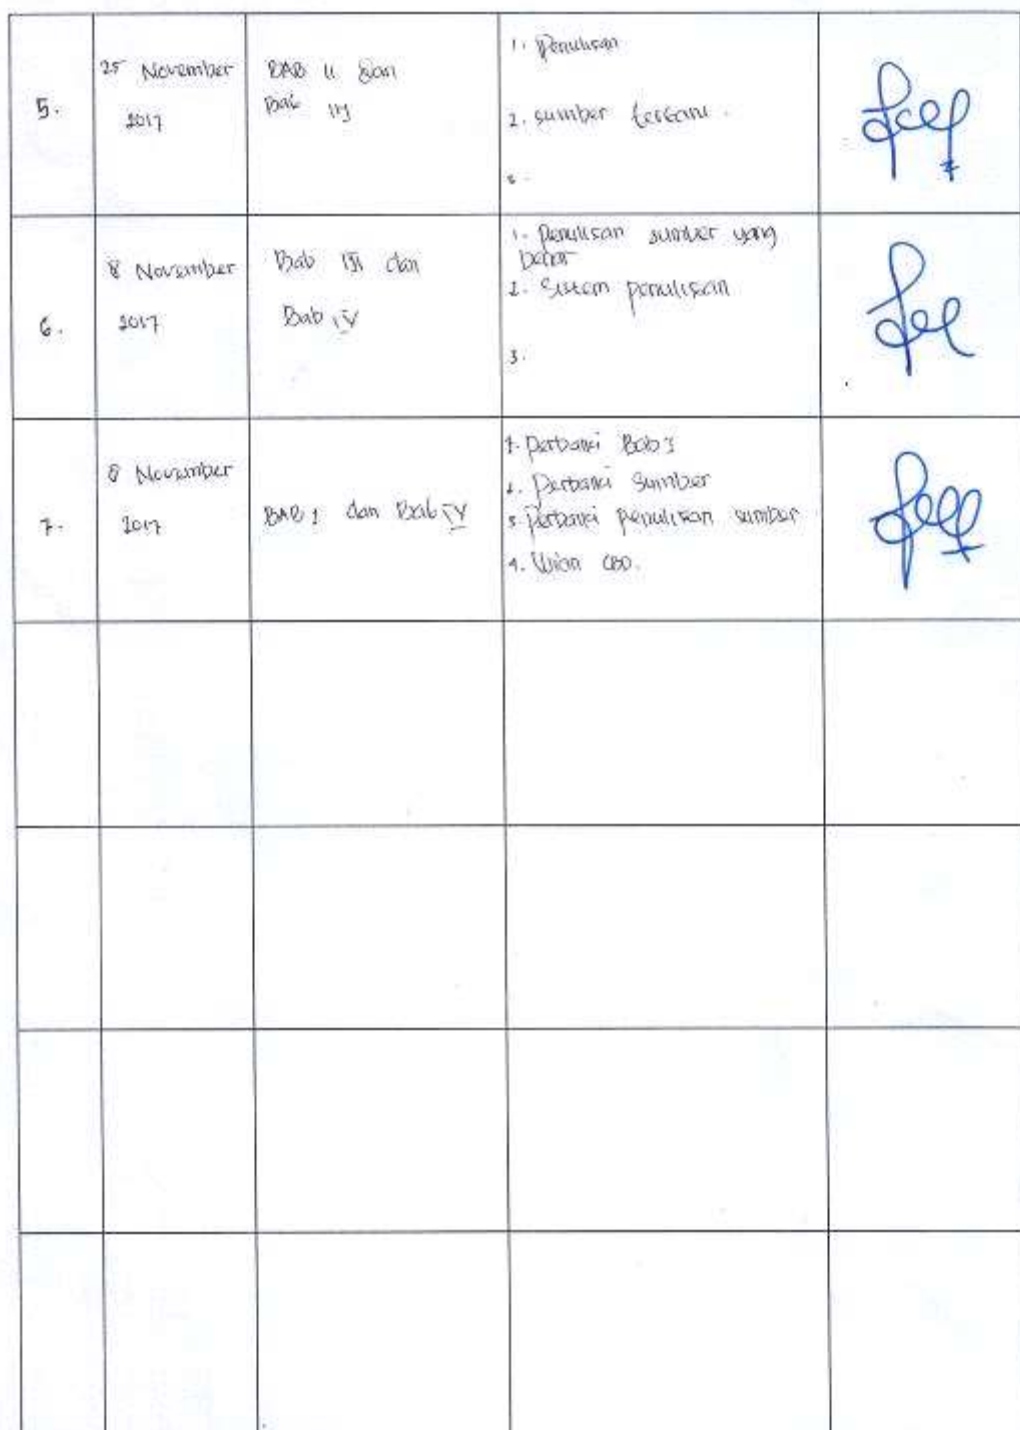 5.
25 November
2017
BAB II dan
Bab III
1. Penulisan
2. sumber
3.
6.
8 November
2017
Bab III dan
Bab IV
1. Penulisan sumber yang
benar
2. Sistem penulisan
3.
7.
8 November
2017
BAB 1 dan Bab IV
1. Perbaiki Bab 1
2. Perbaiki Sumber
3. Perbaiki penulisan sumber
4. Ujian CBO.